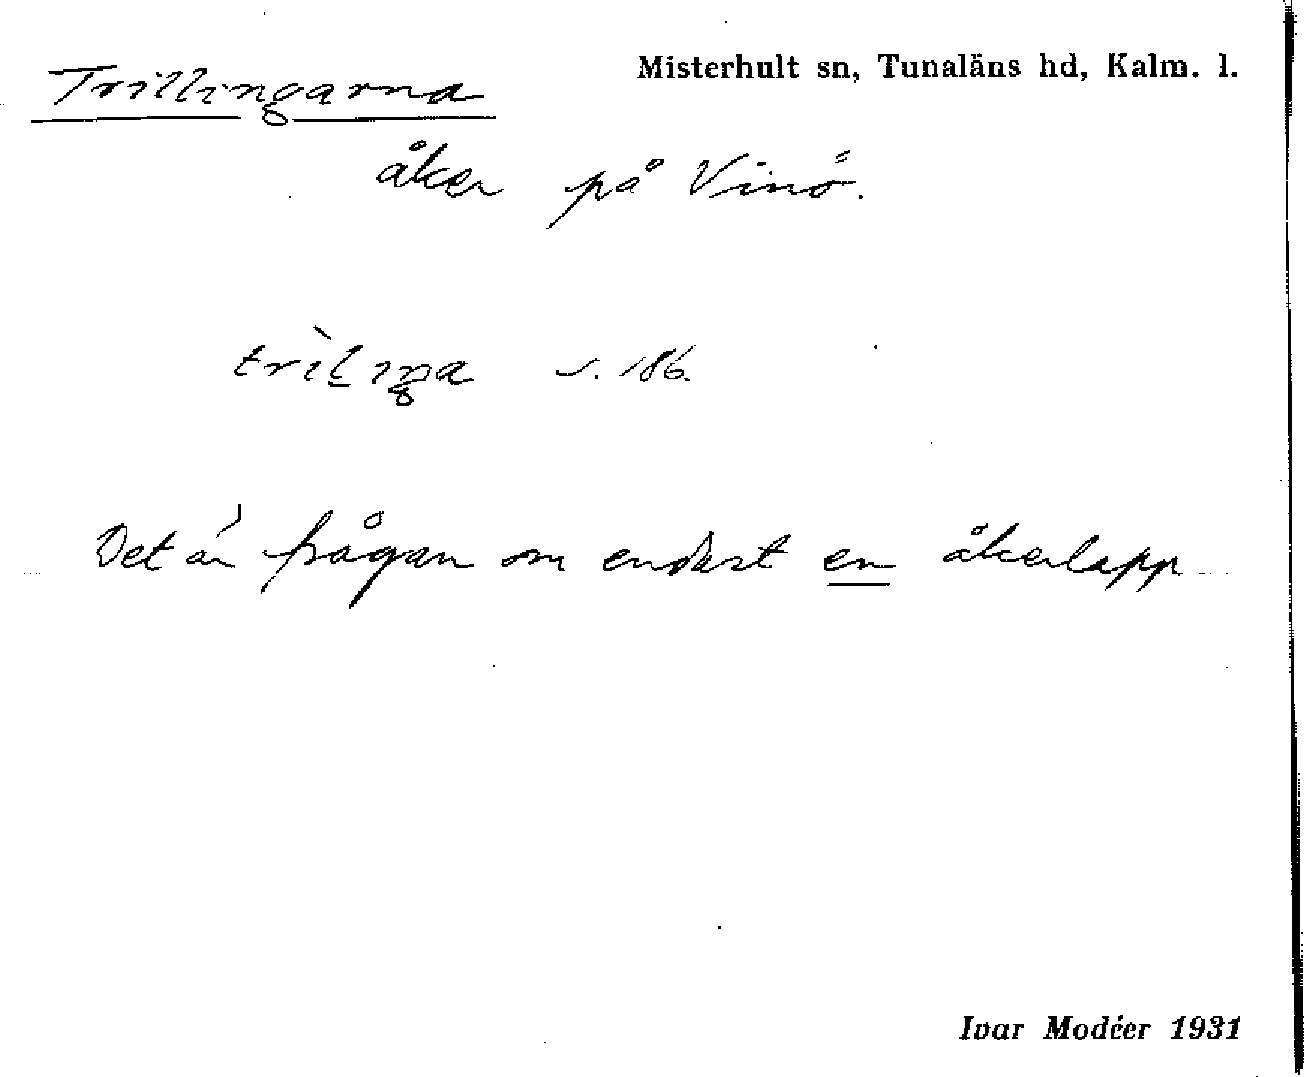 Misterhult sn, Tunaläns hd, Kalm. l.
Trillingarna
åker på Vinö.
s. 186.
Det är frågan om endast en åkerlapp
Ivar Modéer 1931